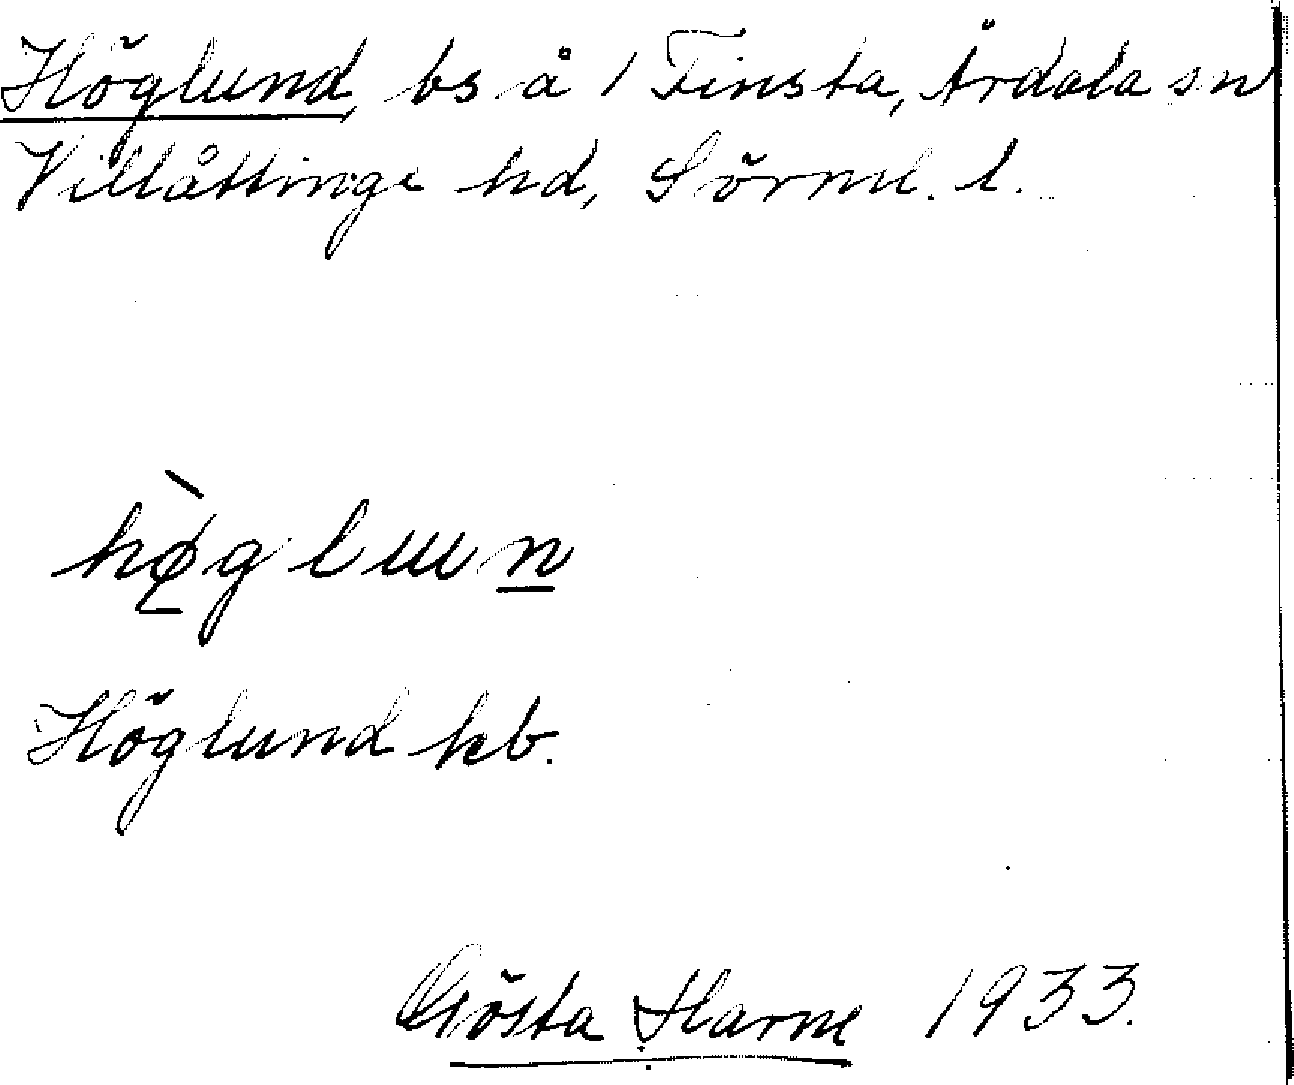 Höglund, bs å 1 Finsta, Årdala sn
Villåttinge hd, Sörml. l.
hø̀gluun
Höglund kb.
Gösta Harne 1933.